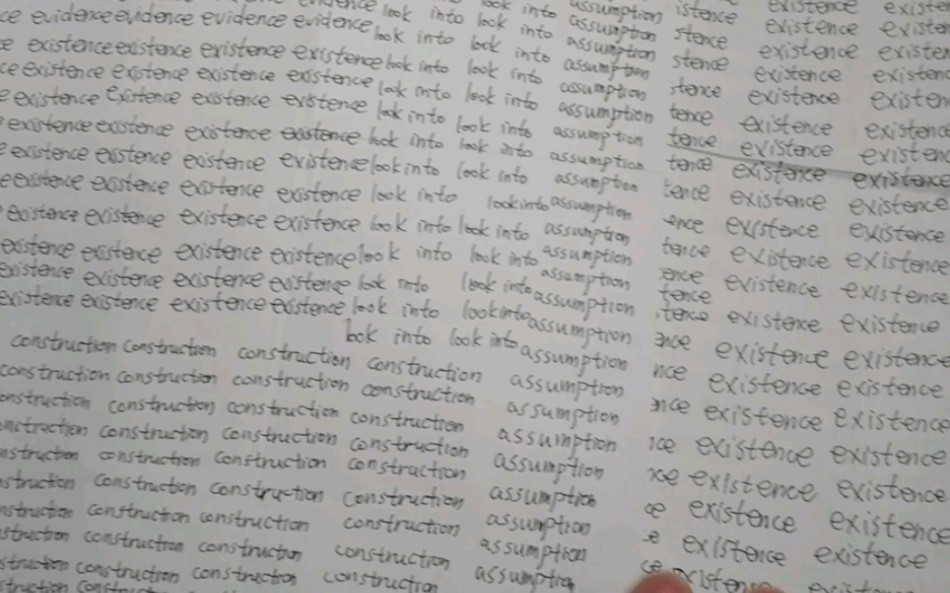 evidence look into look into assumption
ce evidence evidence evidence evidence look into look into assumption
e existence existence existence existence look into look into assumption
ce existence existence existence existence look into look into assumption
e existence existence existence existence look into look into assumption
existence existence existence existence look into look into assumption
e existence existence existence existence look into look into assumption
e existence existence existence existence look into look into assumption
existence existence existence existence look into look into assumption
existence existence existence existence look into look into assumption
existence existence existence existence look into look into assumption
existence existence existence existence look into look into assumption
look into look into assumption
construction construction construction construction assumption
construction construction construction construction assumption
onstruction construction construction construction assumption
onstruction construction construction construction assumption
nstruction construction construction construction assumption
struction construction construction construction assumption
nstruction construction construction construction assumption
struction construction construction construction assumption
struction construction construction construction assumption
istence existence existe
stence existence existen
stence existence existen
stence existence existen
tence existence existenc
tence existence existen
tence existence existence
tence existence existence
ence existence existence
tence existence existence
ence existence existence
tence existence existence
tence existence existence
ence existence existence
nce existence existence
nce existence existence
nce existence existence
ce existence existence
ce existence existence
e existence existence
ce existence